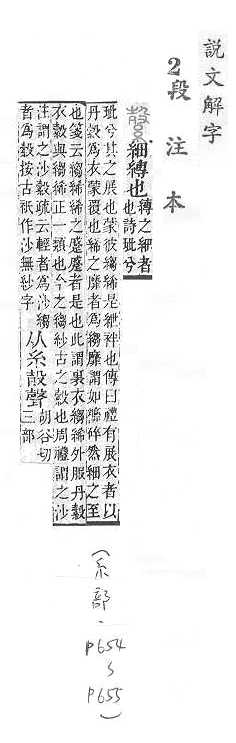 說文解字
2 段注本
縠 細縛也 縛之細者
也詩玼兮
玼兮其之展也蒙彼縐絺是紲袢也傳曰禮有展衣者以
丹縠爲衣蒙覆也絺之靡者爲縐靡謂如碎然細之至
也箋云縐絺絺之蹙蹙者是也此謂裏衣縐絺外服丹縠
衣縠與縐絺正一類也今之縐紗古之縠也周禮謂之沙
注謂之沙縠疏云輕者爲沙縐
者爲縠按古祇作沙無紗字
从糸㱿聲 胡谷切
三部
(糸部,
P654
~
P655)